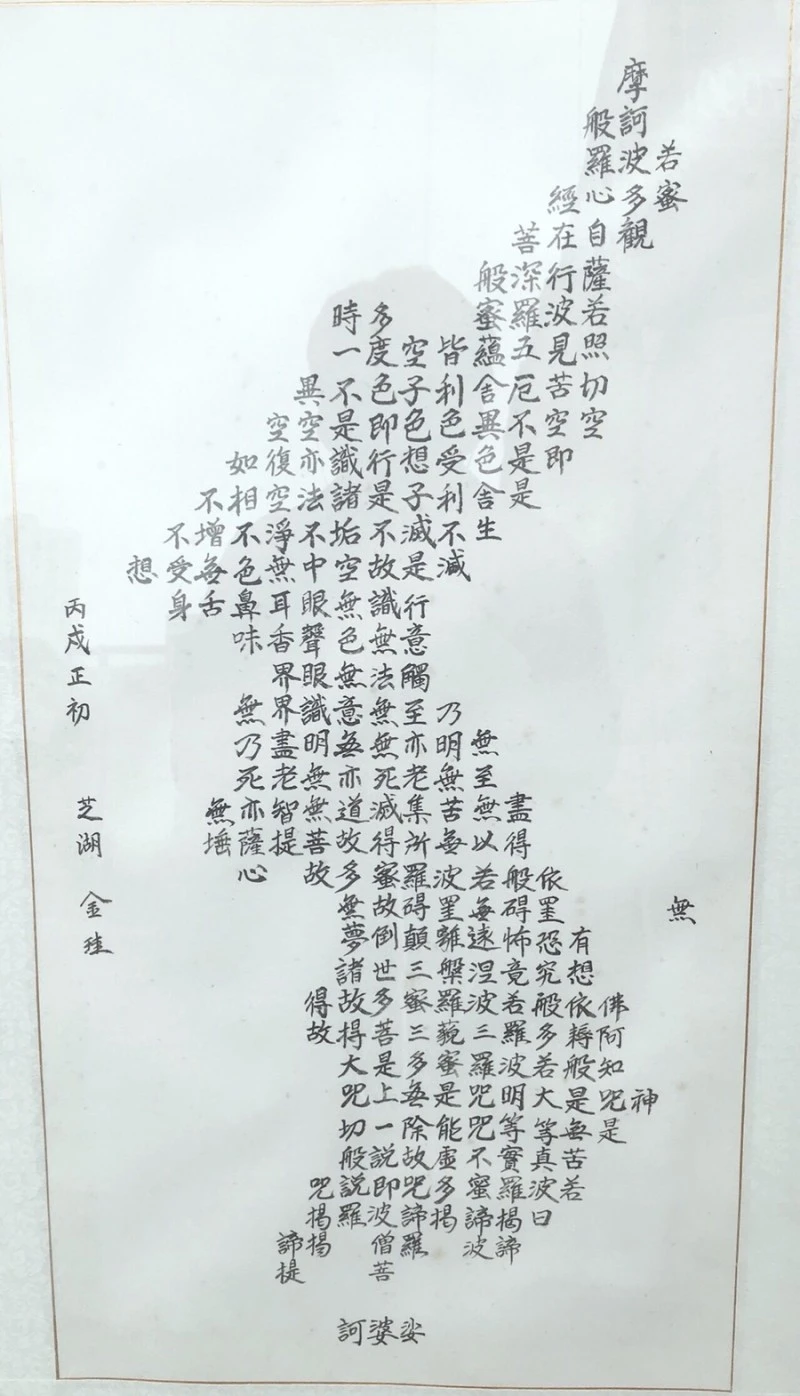 摩
訶般
若波羅
蜜多心經
觀自在菩
薩行深般
若波羅蜜多時
照見五蘊皆空度一
切苦厄舍利子色不異
空空不異色色即是空空
即是色受想行識亦復如
是舍利子是諸法空相不
生不滅不垢不淨不增不
減是故空中無色無受想
行識無眼耳鼻舌身
意無色聲香味
觸法無眼界
乃至無意識界無
無明亦無明盡乃
至無老死亦無老死
盡無苦集滅道無智亦無
得以無所得故菩提薩埵
依般若波羅蜜多故心
無罣碍無罣碍故無
有恐怖遠離顛倒夢
想究竟涅槃三世諸
佛依般若波羅蜜多故得
阿耨多羅三藐三菩得故
知般若波羅蜜多是大
神咒是大明咒是無上咒
是無等等咒能除一切
苦真實不虛故說般
若波羅蜜多咒即說咒
曰揭諦揭諦波羅揭
諦波羅僧揭諦
菩提
娑婆訶
丙戌正初
芝湖 金珪